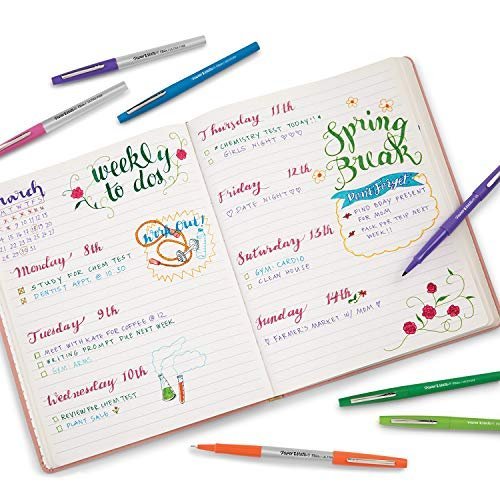 Paper Mate Flair
Paper Mate Flair
Paper Mate Flair
march
weekly
to dos
Monday 8th
STUDY FOR CHEM TEST
DENTIST APPT. @ 10:30
Tuesday 9th
MEET WITH KATE FOR COFFEE @ 12
WRITING PROMPT DUE NEXT WEEK
GYM: ARMS
Wednesday 10th
REVIEW FOR CHEM TEST
PLANT SALE
Thursday 11th
*CHEMISTRY TEST TODAY!!*
GIRLS NIGHT ♡♡♡
Friday 12th
♡ DATE NIGHT ♡
Saturday 13th
GYM: CARDIO
CLEAN HOUSE
Sunday 14th
♡ FARMER'S MARKET W/ MOM ♡
Spring
Break
Don't Forget
FIND BDAY PRESENT
FOR MOM
PACK FOR TRIP NEXT
WEEK!!
Paper Mate Flair
Paper Mate Flair
Paper Mate Flair